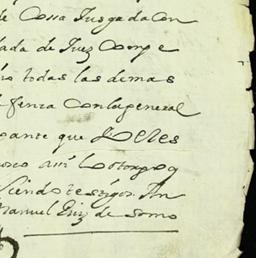 de Cosa Jusgada Con
lada de Juez Conpe
todas las demas
fensa Con la general
pante que
assi lo otorgo y
siendo testigos Dn
Manuel Ruiz de Somo